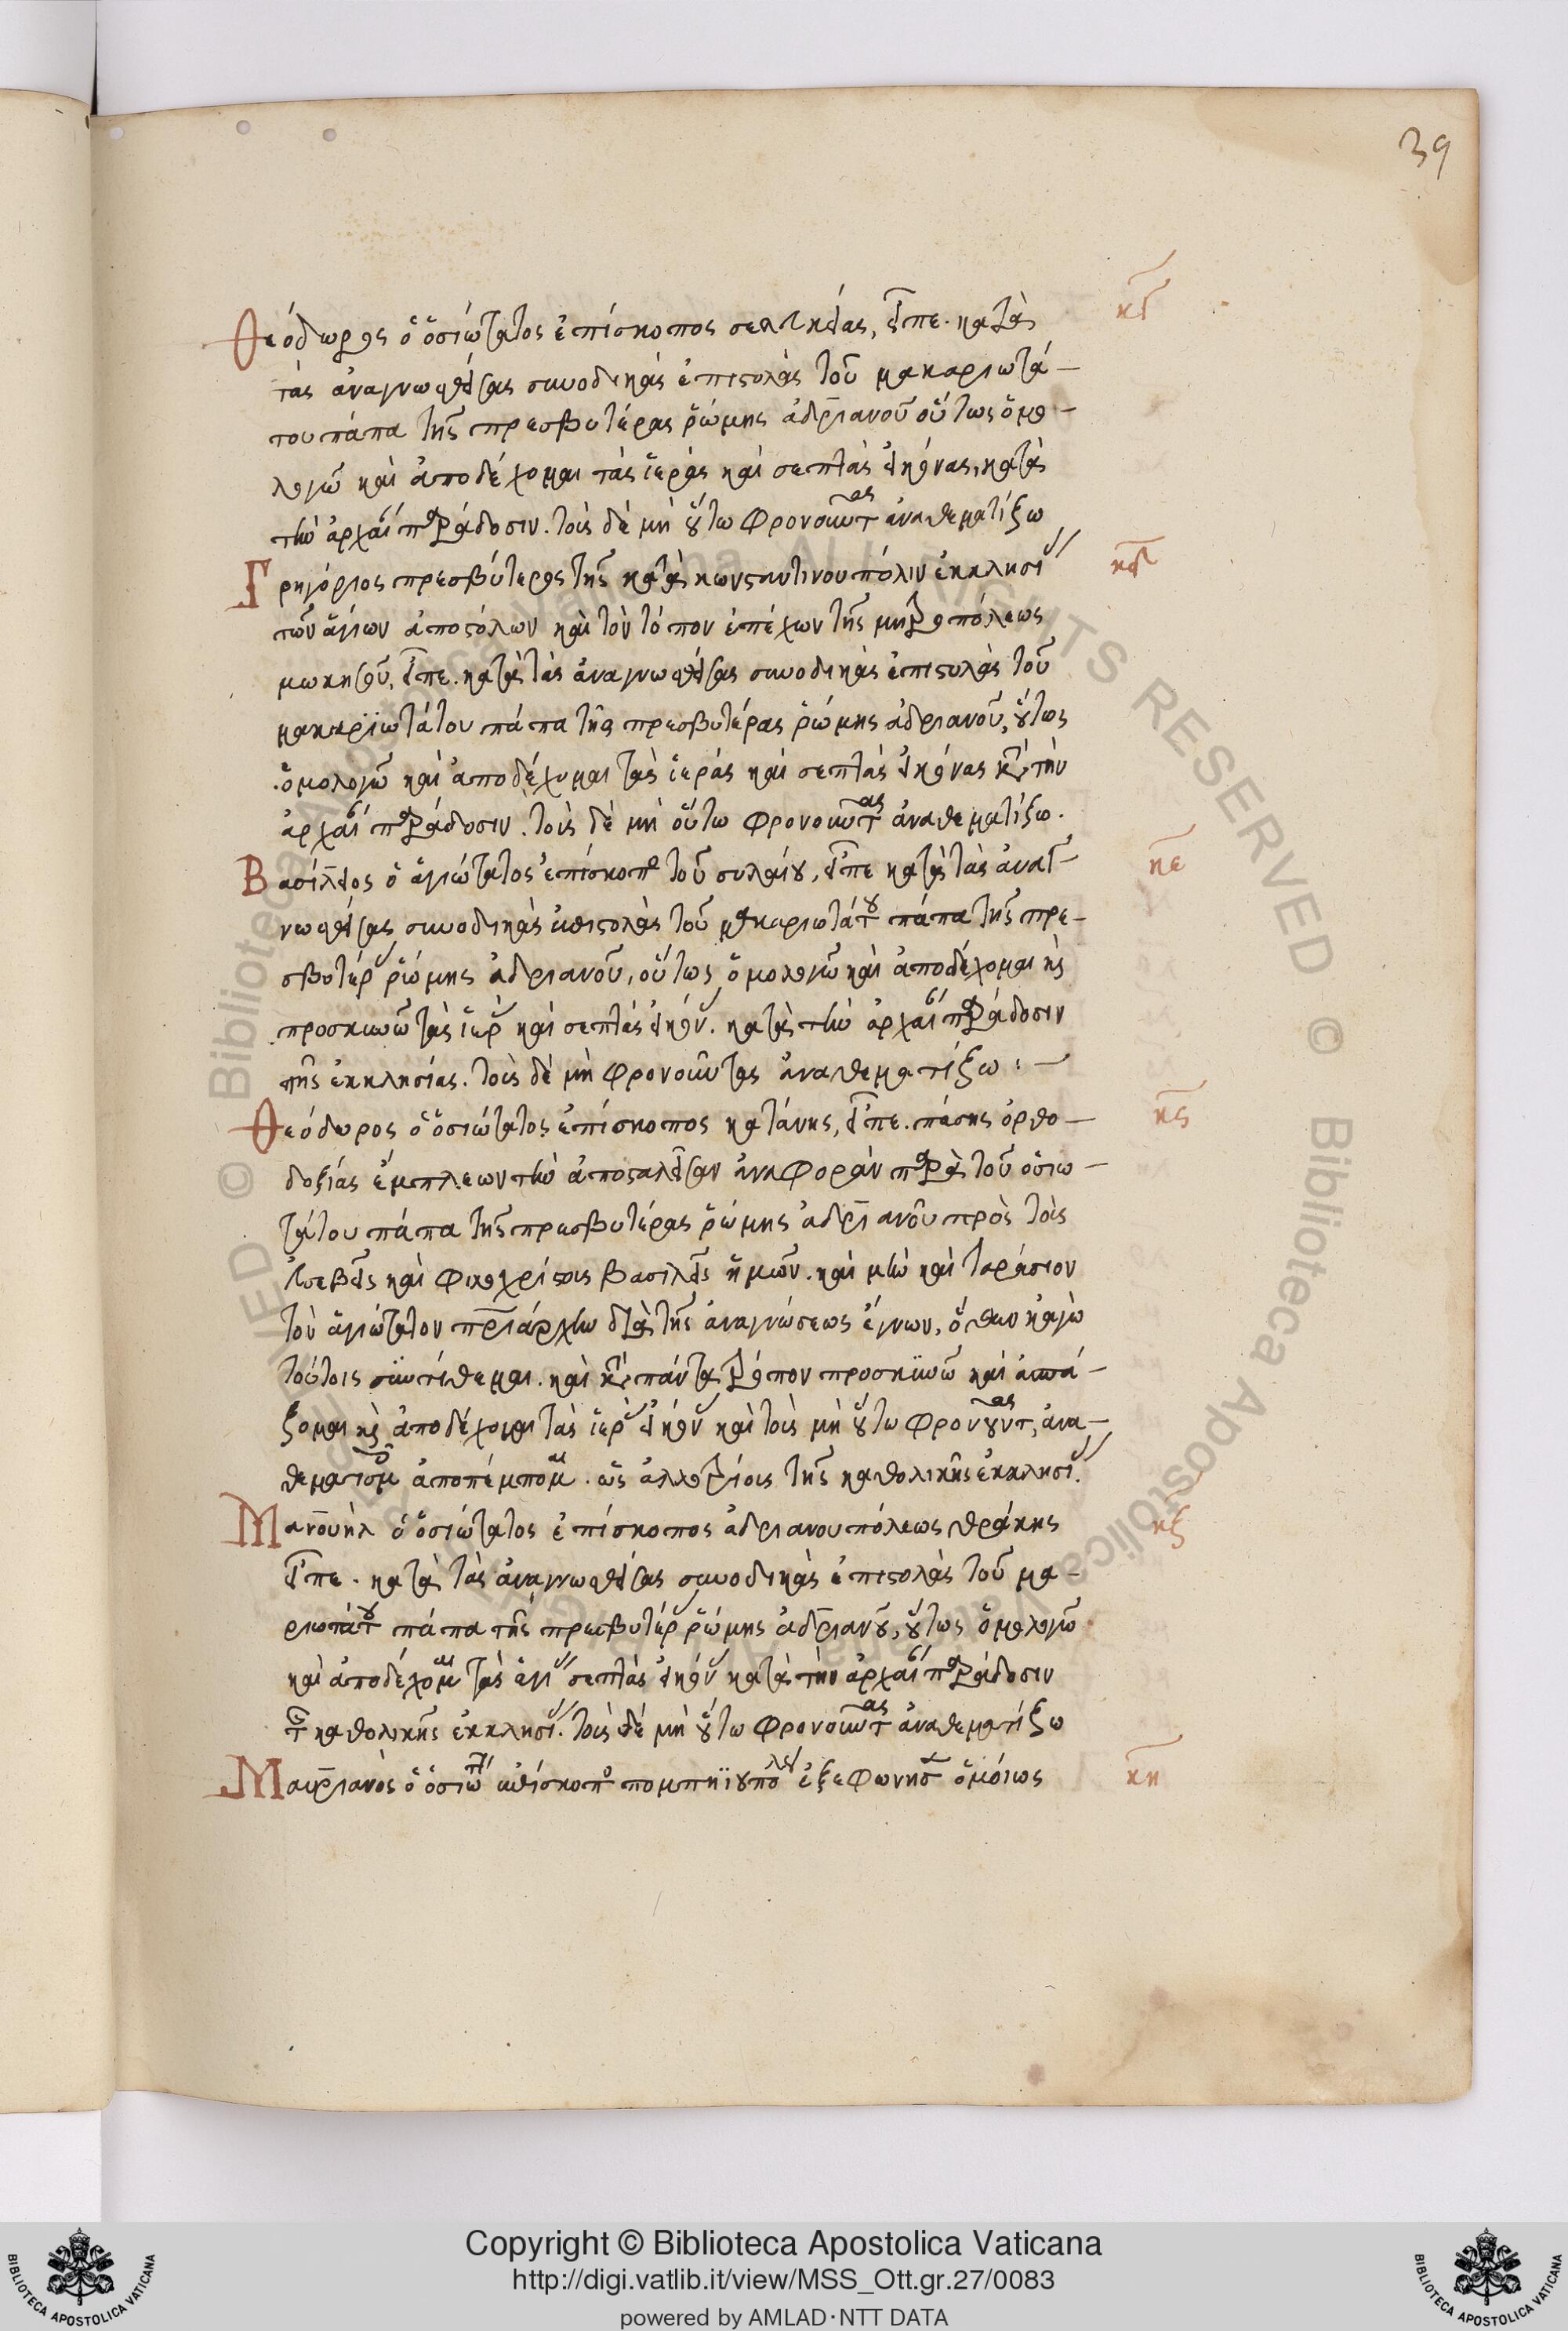 39
Θεόδωρος ὁ ὁσιώτατος ἐπίσκοπος σελευκείας, εἶπε. κατὰ κγ
τὰς ἀναγνωσθείσας συνοδικὰς ἐπιστολὰς τοῦ μακαριωτά-
του πάπα τῆς πρεσβυτέρας ῥώμης ἀδριανοῦ οὕτως ὁμο-
λογῶ καὶ ἀποδέχομαι τὰς ἱερὰς καὶ σεπτὰς εἰκόνας, κατὰ
τὴν ἀρχαί παράδοσιν. τοὺς δὲ μὴ οὕτω φρονοῦντας ἀναθεματίζω
Γρηγόριος πρεσβύτερος τῆς κατὰ κωνσταντινουπόλιν ἐκκλησί κδ
τῶν ἁγίων ἀποστόλων καὶ τὸν τόπον ἐπέχων τῆς μητροπόλεως
μωκησοῦ, εἶπε. κατὰ τὰς ἀναγνωσθείσας συνοδικὰς ἐπιστολὰς τοῦ
μακαριωτάτου πάπα τῆς πρεσβυτέρας ῥώμης ἀδριανοῦ, οὕτως
ὁμολογῶ καὶ ἀποδέχομαι τὰς ἱερὰς καὶ σεπτὰς εἰκόνας κατὰ τὴν
ἀρχαί παράδοσιν. τοὺς δὲ μὴ οὕτω φρονοῦντας ἀναθεματίζω.
Βασίλειος ὁ ἁγιώτατος ἐπίσκοπο τοῦ συλαίου, εἶπε κατὰ τὰς ἀναγ- κε
νωσθείσας συνοδικὰς ἐπιστολὰς τοῦ μακαριωτάτου πάπα τῆς πρε-
σβυτέρ ῥώμης ἀδριανοῦ, οὕτως ὁμολογῶ καὶ ἀποδέχομαι καὶ
προσκυνῶ τὰς ἱερ καὶ σεπτὰς εἰκόν. κατὰ τὴν ἀρχαί παράδοσιν
τῆς ἐκκλησίας. τοὺς δὲ μὴ φρονοῦντας ἀναθεματίζω:-
Θεόδωρος ὁ ὁσιώτατος ἐπίσκοπος κατάνης, εἶπε. πάσης ὀρθο- κς
δοξίας ἔμπλεων τὴν ἀποσταλεῖσαν ἀναφορὰν παρὰ τοῦ ὁσιω-
τάτου πάπα τῆς πρεσβυτέρας ῥώμης ἀδριανοῦ πρὸς τοὺς
εὐσεβεῖς καὶ φιλοχρίστους βασιλεῖς ἡμῶν. καὶ μὴν καὶ ταράσιον
τὸν ἁγιώτατον πριάρχην διὰ τῆς ἀναγνώσεως ἔγνων, ὅθεν κἀγὼ
τούτοις συντίθεμαι. καὶ κατὰ πάντα τρόπον προσκυνῶ καὶ ἀσπά-
ζομαι καὶ ἀποδέχομαι τὰς ἱερ εἰκόν καὶ τοὺς μὴ οὕτω φρονοῦντας, ἀνα-
θεματισμῶ ἀποπέμπομαι. ὡς ἀλλοτρίους τῆς καθολικῆς ἐκκλησί.
Μανουὴλ ὁ ὁσιώτατος ἐπίσκοπος ἀδριανουπόλεως θράκης κζ
εἶπε. κατὰ τὰς ἀναγνωσθείσας συνοδικὰς ἐπιστολὰς τοῦ μα-
ριωτάτου πάπα τῆς πρεσβυτέρ ῥώμης ἀδριανοῦ, οὕτως ὁμολογῶ
καὶ ἀποδέχομαι τὰς ἁγί σεπτὰς εἰκόν κατὰ τὴν ἀρχαί παράδοσιν
τῆς καθολικῆς ἐκκλησί. τοὺς δὲ μὴ οὕτω φρονοῦντας ἀναθεματίζω
Μαυριανὸς ὁ ὁσιώτ ἐπίσκοπο πομπηϊουπόλε ἐξεφώνησ ὁμοίως κη
Copyright © Biblioteca Apostolica Vaticana
http://digi.vatlib.it/view/MSS_Ott.gr.27/0083
powered by AMLAD·NTT DATA
BIBLIOTECA APOSTOLICA VATICANA
BIBLIOTECA APOSTOLICA VATICANA